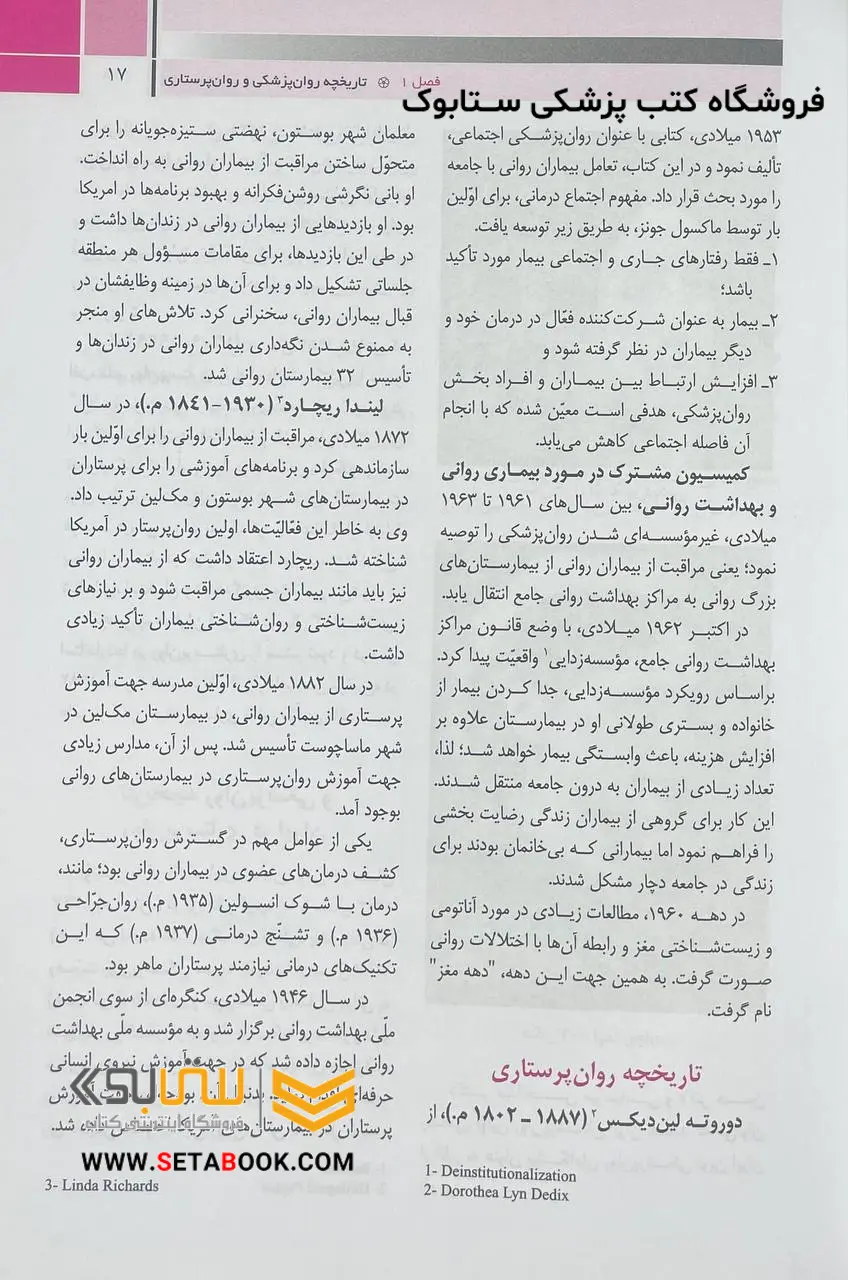 ۱۷
فصل ۱ تاریخچه روان‌پزشکی و روان‌پرستاری
فروشگاه کتب پزشکی ستابوک
۱۹۵۳ میلادی، کتابی با عنوان روان‌پزشکی اجتماعی،
تألیف نمود و در این کتاب، تعامل بیماران روانی با جامعه
را مورد بحث قرار داد. مفهوم اجتماع درمانی، برای اوّلین
بار توسط ماکسول جونز، به طریق زیر توسعه یافت.
۱ـ فقط رفتارهای جاری و اجتماعی بیمار مورد تأکید
باشد؛
۲ـ بیمار به عنوان شرکت‌کننده فعّال در درمان خود و
دیگر بیماران در نظر گرفته شود و
۳ـ افزایش ارتباط بین بیماران و افراد بخش
روان‌پزشکی، هدفی است معیّن شده که با انجام
آن فاصله اجتماعی کاهش می‌یابد.
کمیسیون مشترک در مورد بیماری روانی
و بهداشت روانی، بین سال‌های ۱۹۶۱ تا ۱۹۶۳
میلادی، غیرمؤسسه‌ای شدن روان‌پزشکی را توصیه
نمود؛ یعنی مراقبت از بیماران روانی از بیمارستان‌های
بزرگ روانی به مراکز بهداشت روانی جامع انتقال یابد.
در اکتبر ۱۹۶۲ میلادی، با وضع قانون مراکز
بهداشت روانی جامع، مؤسسه‌زدایی۱ واقعیّت پیدا کرد.
براساس رویکرد مؤسسه‌زدایی، جدا کردن بیمار از
خانواده و بستری طولانی او در بیمارستان علاوه بر
افزایش هزینه، باعث وابستگی بیمار خواهد شد؛ لذا،
تعداد زیادی از بیماران به درون جامعه منتقل شدند.
این کار برای گروهی از بیماران زندگی رضایت بخشی
را فراهم نمود اما بیمارانی که بی‌خانمان بودند برای
زندگی در جامعه دچار مشکل شدند.
در دهه ۱۹۶۰، مطالعات زیادی در مورد آناتومی
و زیست‌شناختی مغز و رابطه آن‌ها با اختلالات روانی
صورت گرفت. به همین جهت این دهه، "دهه مغز"
نام گرفت.
تاریخچه روان‌پرستاری
دوروته لین‌دیکس۲ (۱۸۸۷ ـ ۱۸۰۲ م.)، از
1- Deinstitutionalization
2- Dorothea Lyn Dedix
معلمان شهر بوستون، نهضتی ستیزه‌جویانه را برای
متحوّل ساختن مراقبت از بیماران روانی به راه انداخت.
او بانی نگرشی روشن‌فکرانه و بهبود برنامه‌ها در امریکا
بود. او بازدیدهایی از بیماران روانی در زندان‌ها داشت و
در طی این بازدیدها، برای مقامات مسؤول هر منطقه
جلساتی تشکیل داد و برای آن‌ها در زمینه وظایفشان در
قبال بیماران روانی، سخنرانی کرد. تلاش‌های او منجر
به ممنوع شدن نگه‌داری بیماران روانی در زندان‌ها و
تأسیس ۳۲ بیمارستان روانی شد.
لیندا ریچارد۳ (۱۹۳۰-۱۸۴۱ م.)، در سال
۱۸۷۲ میلادی، مراقبت از بیماران روانی را برای اوّلین بار
سازماندهی کرد و برنامه‌های آموزشی را برای پرستاران
در بیمارستان‌های شهر بوستون و مک‌لین ترتیب داد.
وی به خاطر این فعّالیّت‌ها، اولین روان‌پرستار در آمریکا
شناخته شد. ریچارد اعتقاد داشت که از بیماران روانی
نیز باید مانند بیماران جسمی مراقبت شود و بر نیازهای
زیست‌شناختی و روان‌شناختی بیماران تأکید زیادی
داشت.
در سال ۱۸۸۲ میلادی، اوّلین مدرسه جهت آموزش
پرستاری از بیماران روانی، در بیمارستان مک‌لین در
شهر ماساچوست تأسیس شد. پس از آن، مدارس زیادی
جهت آموزش روان‌پرستاری در بیمارستان‌های روانی
بوجود آمد.
یکی از عوامل مهم در گسترش روان‌پرستاری،
کشف درمان‌های عضوی در بیماران روانی بود؛ مانند،
درمان با شوک انسولین (۱۹۳۵ م.)، روان‌جرّاحی
(۱۹۳۶ م.) و تشنّج درمانی (۱۹۳۷ م.) که این
تکنیک‌های درمانی نیازمند پرستاران ماهر بود.
در سال ۱۹۴۶ میلادی، کنگره‌ای از سوی انجمن
ملّی بهداشت روانی برگزار شد و به مؤسسه ملّی بهداشت
روانی اجازه داده شد که در جهت آموزش نیروی انسانی
حرفه‌ای
پرستاران در بیمارستان‌های شد.
ستابوک
فروشگاه اینترنتی کتاب
WWW.SETABOOK.COM
3- Linda Richards